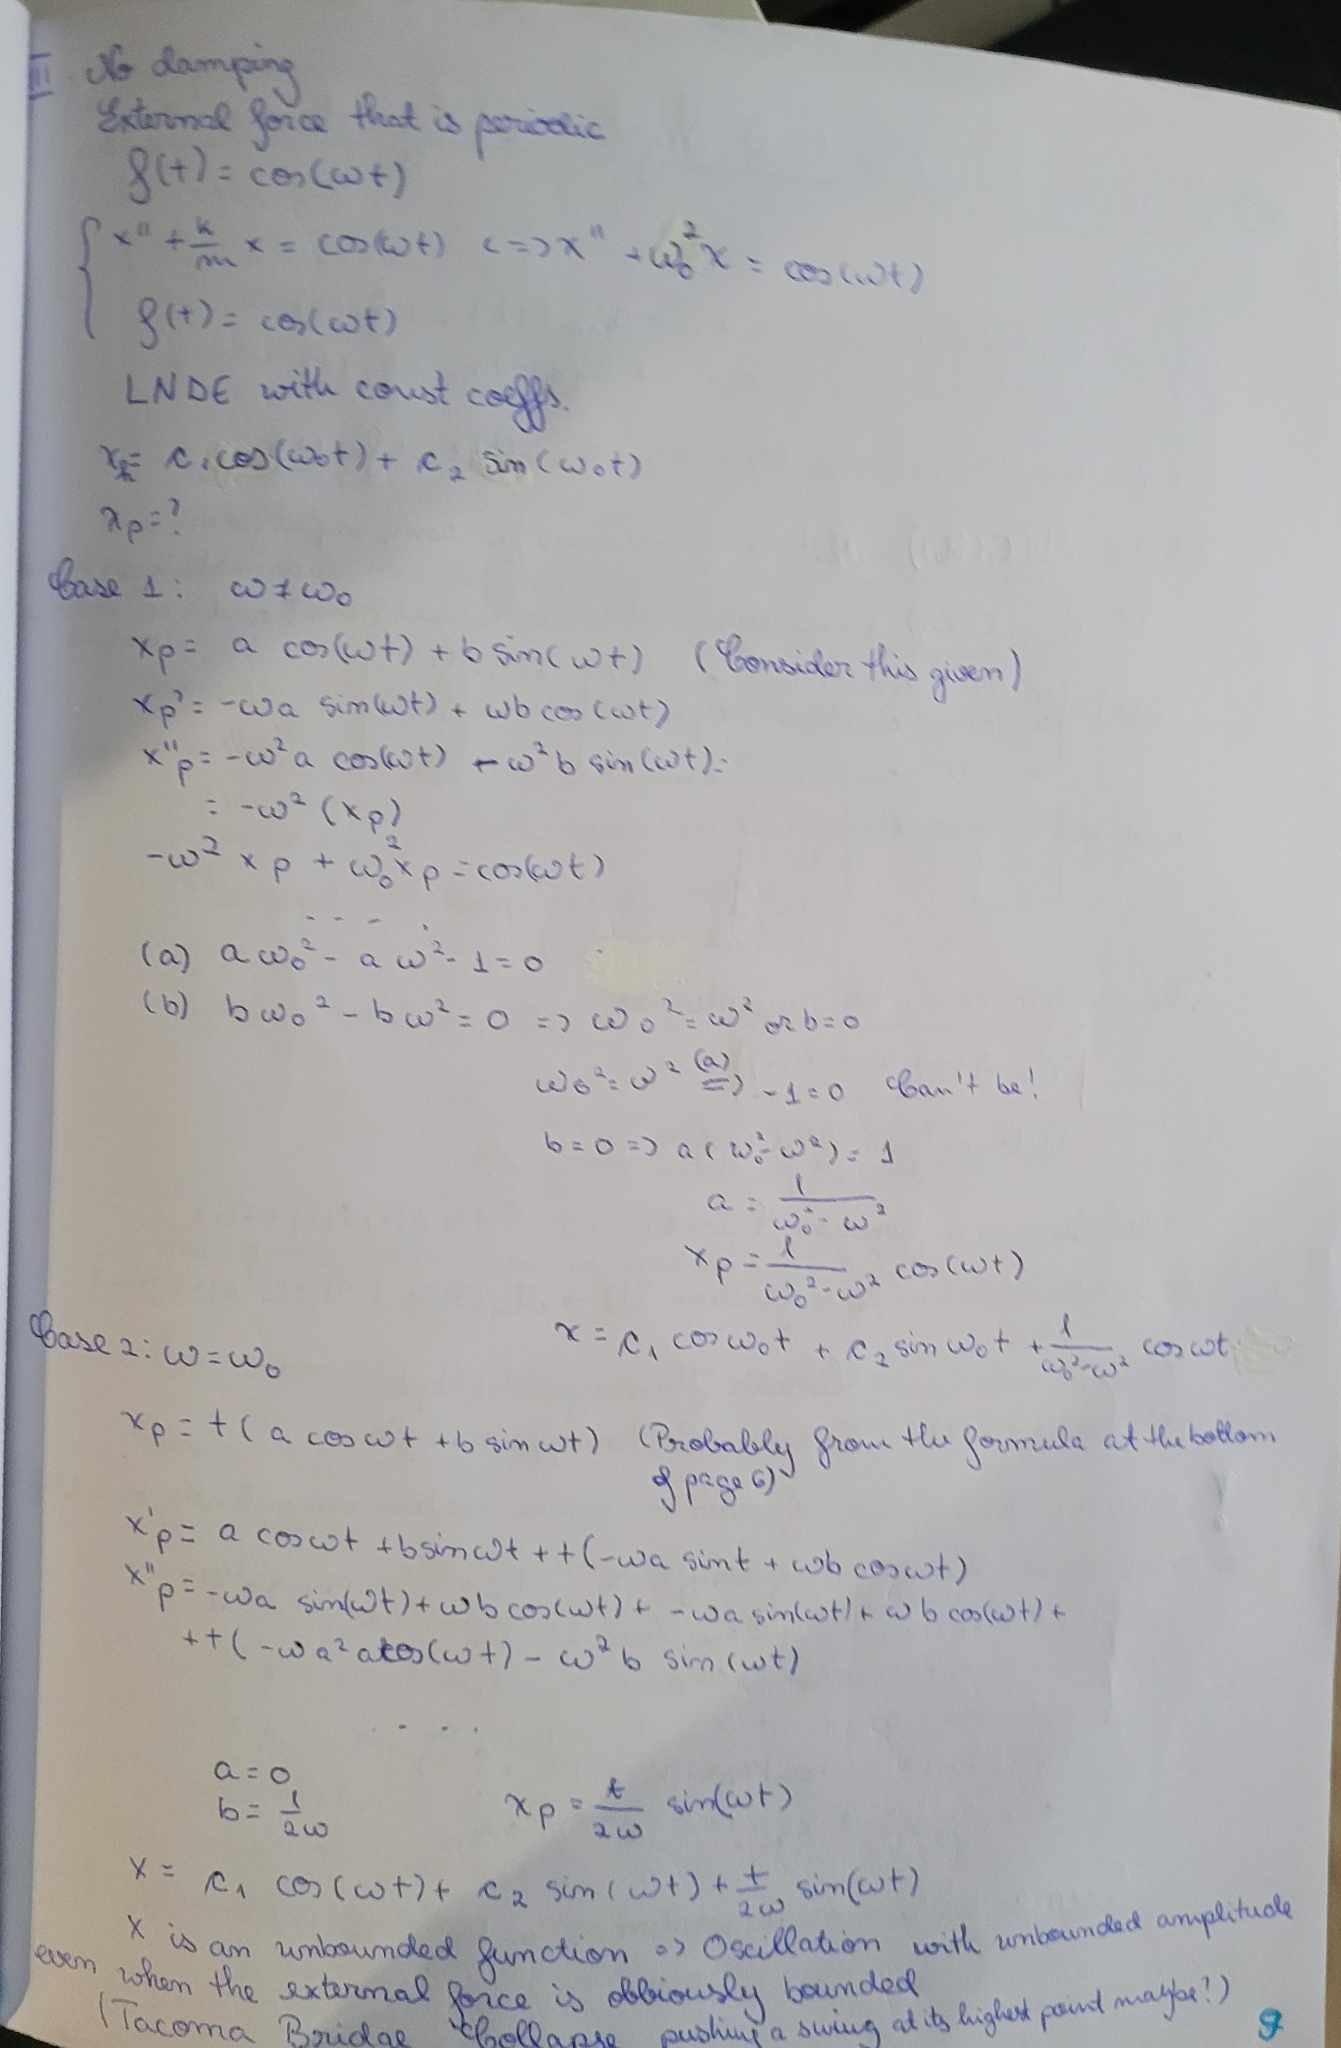 III. No damping
External force that is periodic
f(t) = cos(ωt)
{ x'' + k/m x = cos(ωt) <=> x'' + ω₀² x = cos(ωt)
f(t) = cos(ωt)
LNDE with const coeffs.
xₕ = c₁ cos(ω₀t) + c₂ sin(ω₀t)
xp = ?
Case 1: ω ≠ ω₀
xp = a cos(ωt) + b sin(ωt) (Consider this given)
xp' = -ωa sin(ωt) + ωb cos(ωt)
x''p = -ω² a cos(ωt) - ω² b sin(ωt) =
= -ω² (xp)
-ω² xp + ω₀² xp = cos(ωt)
. . . .
(a) aω₀² - aω² - 1 = 0
(b) bω₀² - bω² = 0 => ω₀² = ω² or b = 0
ω₀² = ω² (a)=> -1 = 0 Can't be!
b = 0 => a(ω₀² - ω²) = 1
a = 1/(ω₀² - ω²)
xp = 1/(ω₀² - ω²) cos(ωt)
x = c₁ cos ω₀t + c₂ sin ω₀t + 1/(ω₀² - ω²) cos ωt
Case 2: ω = ω₀
xp = t(a cos ωt + b sin ωt) (Probably from the formula at the bottom
of page 6)
x'p = a cos ωt + b sin ωt + t(-ωa sin t + ωb cos ωt)
x''p = -ωa sin(ωt) + ωb cos(ωt) + -ωa sin(ωt) + ωb cos(ωt) +
+ t(-ωa² a cos(ωt) - ω² b sin(ωt)
. . . .
a = 0
b = 1/2ω xp = t/2ω sin(ωt)
x = c₁ cos(ωt) + c₂ sin(ωt) + t/2ω sin(ωt)
x is an unbounded function => Oscillation with unbounded amplitude
even when the external force is obbiously bounded
(Tacoma Bridge Collapse, pushing a swing at its highest point maybe?)
9